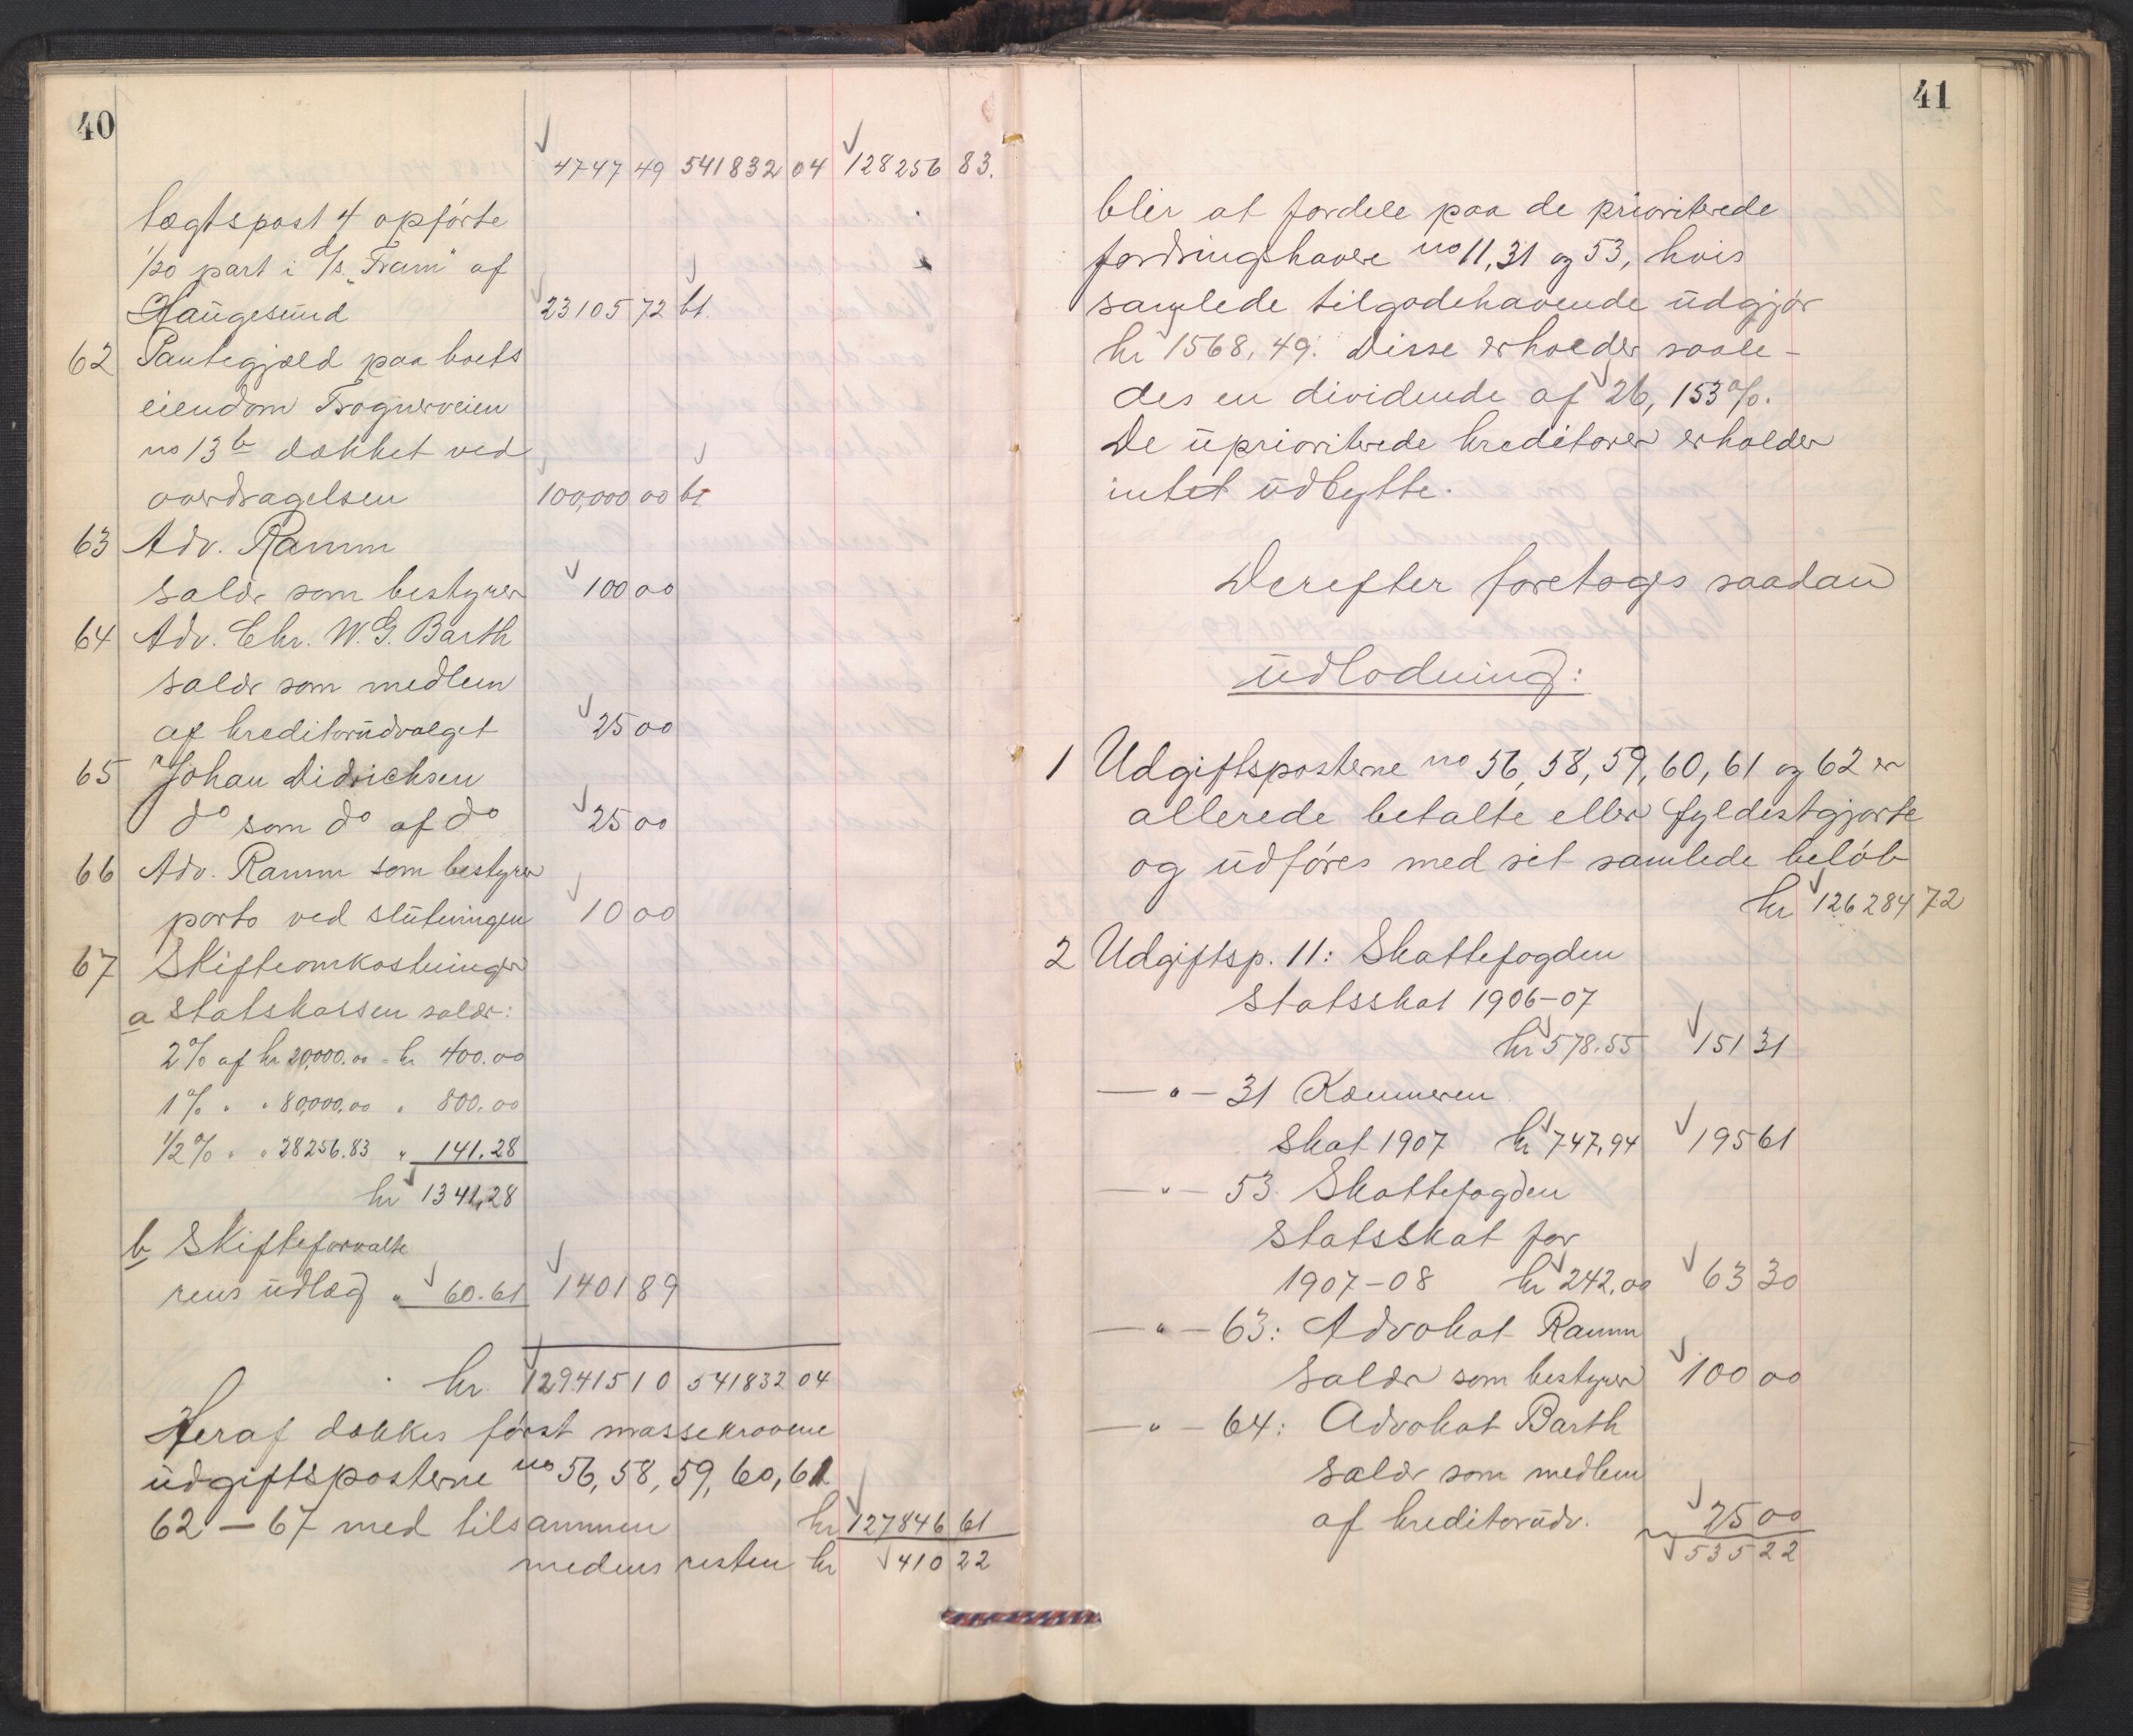 40
4747 49 541832 04 128256 83.
tægtspost 4 opførte
1/20 part i d/s "Fram" af
Haugesund 23105 72 bt.
62 Pantegjæld paa boets
eiendom Frognerveien
no 13 b dækket ved
overdragelsen 100,000 00 bt
63 Adv. Ramm
salær som bestyrer 100 00
64 Adv. Chr. W. G. Barth
salær som medlem
af kreditorudvalget 25 00
65 Johan Didrichsen
do som do af do 25 00
66 Adv. Ramm som bestyrer
porto ved slutningen 10 00
67 Skifteomkostninger
a Statskassen salær:
2% af kr 20,000.00 = kr 400.00
1% " " 80,000.00 " 800.00
1/2% " " 28256.83 " 141.28
kr 1341.28
b Skifteforvalte
rens udlæg " 60.61 1401 89
kr. 129415 10 541832 04
Heraf dækkes først massekravene
udgiftsposterne no 56, 58, 59, 60, 61
62 — 67 med tilsammen kr 127846 61
medens resten kr 410 22
41
blir at fordele paa de prioriterede
fordringshavere no 11, 31 og 53, hvis
samlede tilgodehavende udgjør
kr 1568.49. Disse erholder saale-
des en dividende af 26,153%.
De uprioriterede kreditorer erholder
intet udbytte.
Derefter foretoges saadan
udlodning:
1 Udgiftsposterne no 56, 58, 59, 60, 61 og 62 er
allerede betalte eller fyldestgjorte
og udføres med sit samlede beløb
kr 126284 72
2 Udgiftsp. 11: Skattefogden
Statsskat 1906-07
kr 578.55 151 31
— " — 31 Kæmneren
Skat 1907 kr 747,94 195 61
— " — 53. Skattefogden
Statsskat for
1907-08 kr 242.00 63 30
— " — 63: Advokat Ramm
salær som bestyrer 100 00
— " — 64: Advokat Barth
salær som medlem
af kreditorudv. 25 00
535 22